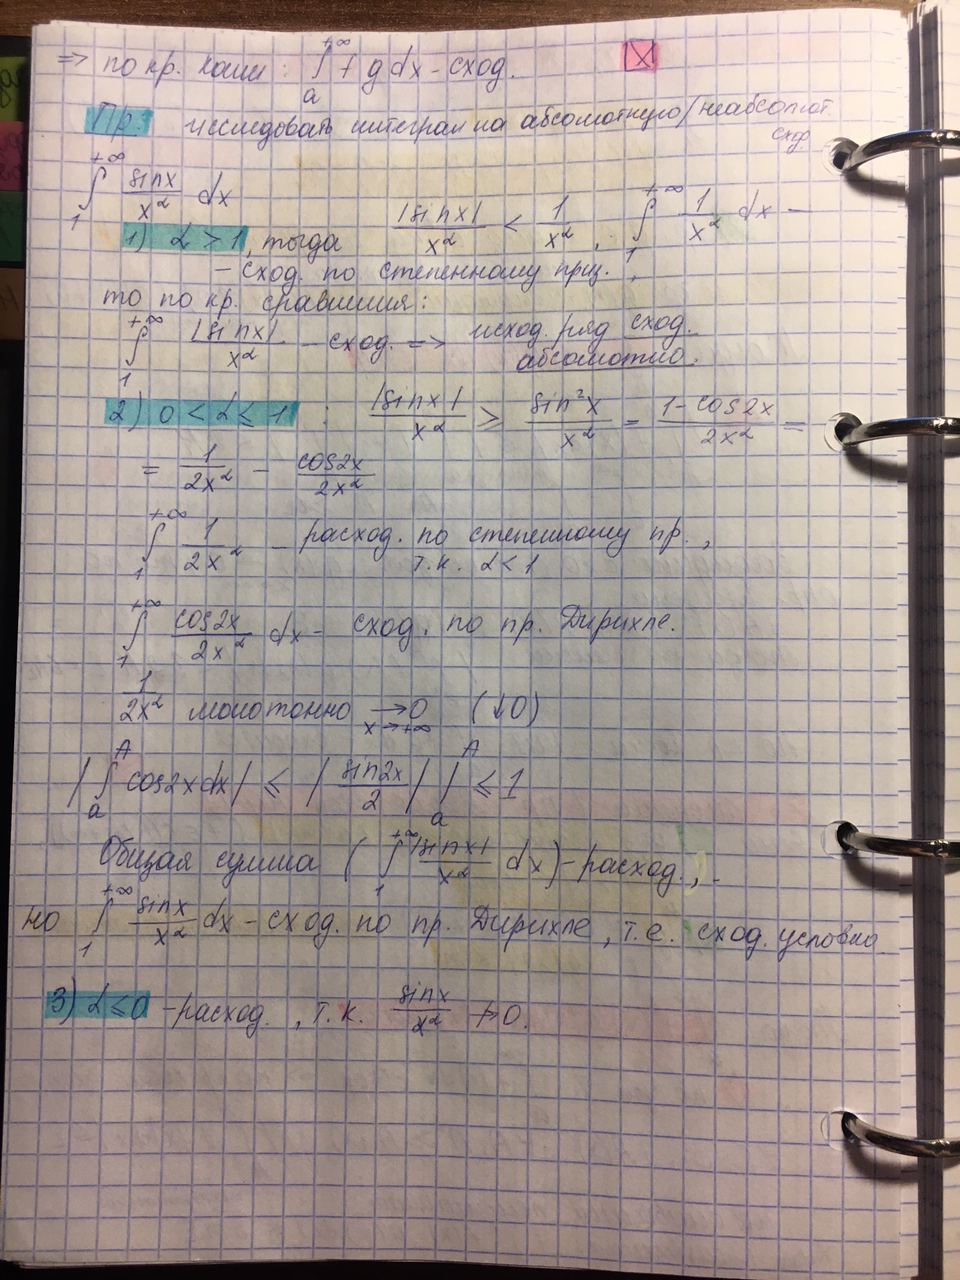 => по кр. Коши: ∫ₐ^{+∞} f g dx - сход. X
Пр. исследовать интеграл на абсолютную/неабсолют. сход.
∫₁^{+∞} sinx/x^α dx
1) α > 1, тогда |sinx|/x^α < 1/x^α, ∫₁^{+∞} 1/x^α dx -
- сход. по степенному призн.,
то по кр. сравнения:
∫₁^{+∞} |sinx|/x^α - сход. => исход. ряд сход. абсолютно.
2) 0 < α ≤ 1 : |sinx|/x^α ≥ sin²x/x^α = (1-cos2x)/2x^α =
= 1/2x^α - cos2x/2x^α
∫₁^{+∞} 1/2x^α - расход. по степенному пр.,
т.к. α<1
∫₁^{+∞} cos2x/2x^α dx - сход. по пр. Дирихле.
1/2x^α монотонно →0 x→+∞ (↓0)
|∫ₐ^A cos2xdx| ≤ |sin2x/2| |ₐ^A ≤ 1
Общая сумма (∫₁^{+∞} |sinx|/x^α dx) - расход.,
но ∫₁^{+∞} sinx/x^α dx - сход. по пр. Дирихле, т.е. сход. условно
3) α ≤ 0 - расход., т.к. sinx/x^α ↛ 0.